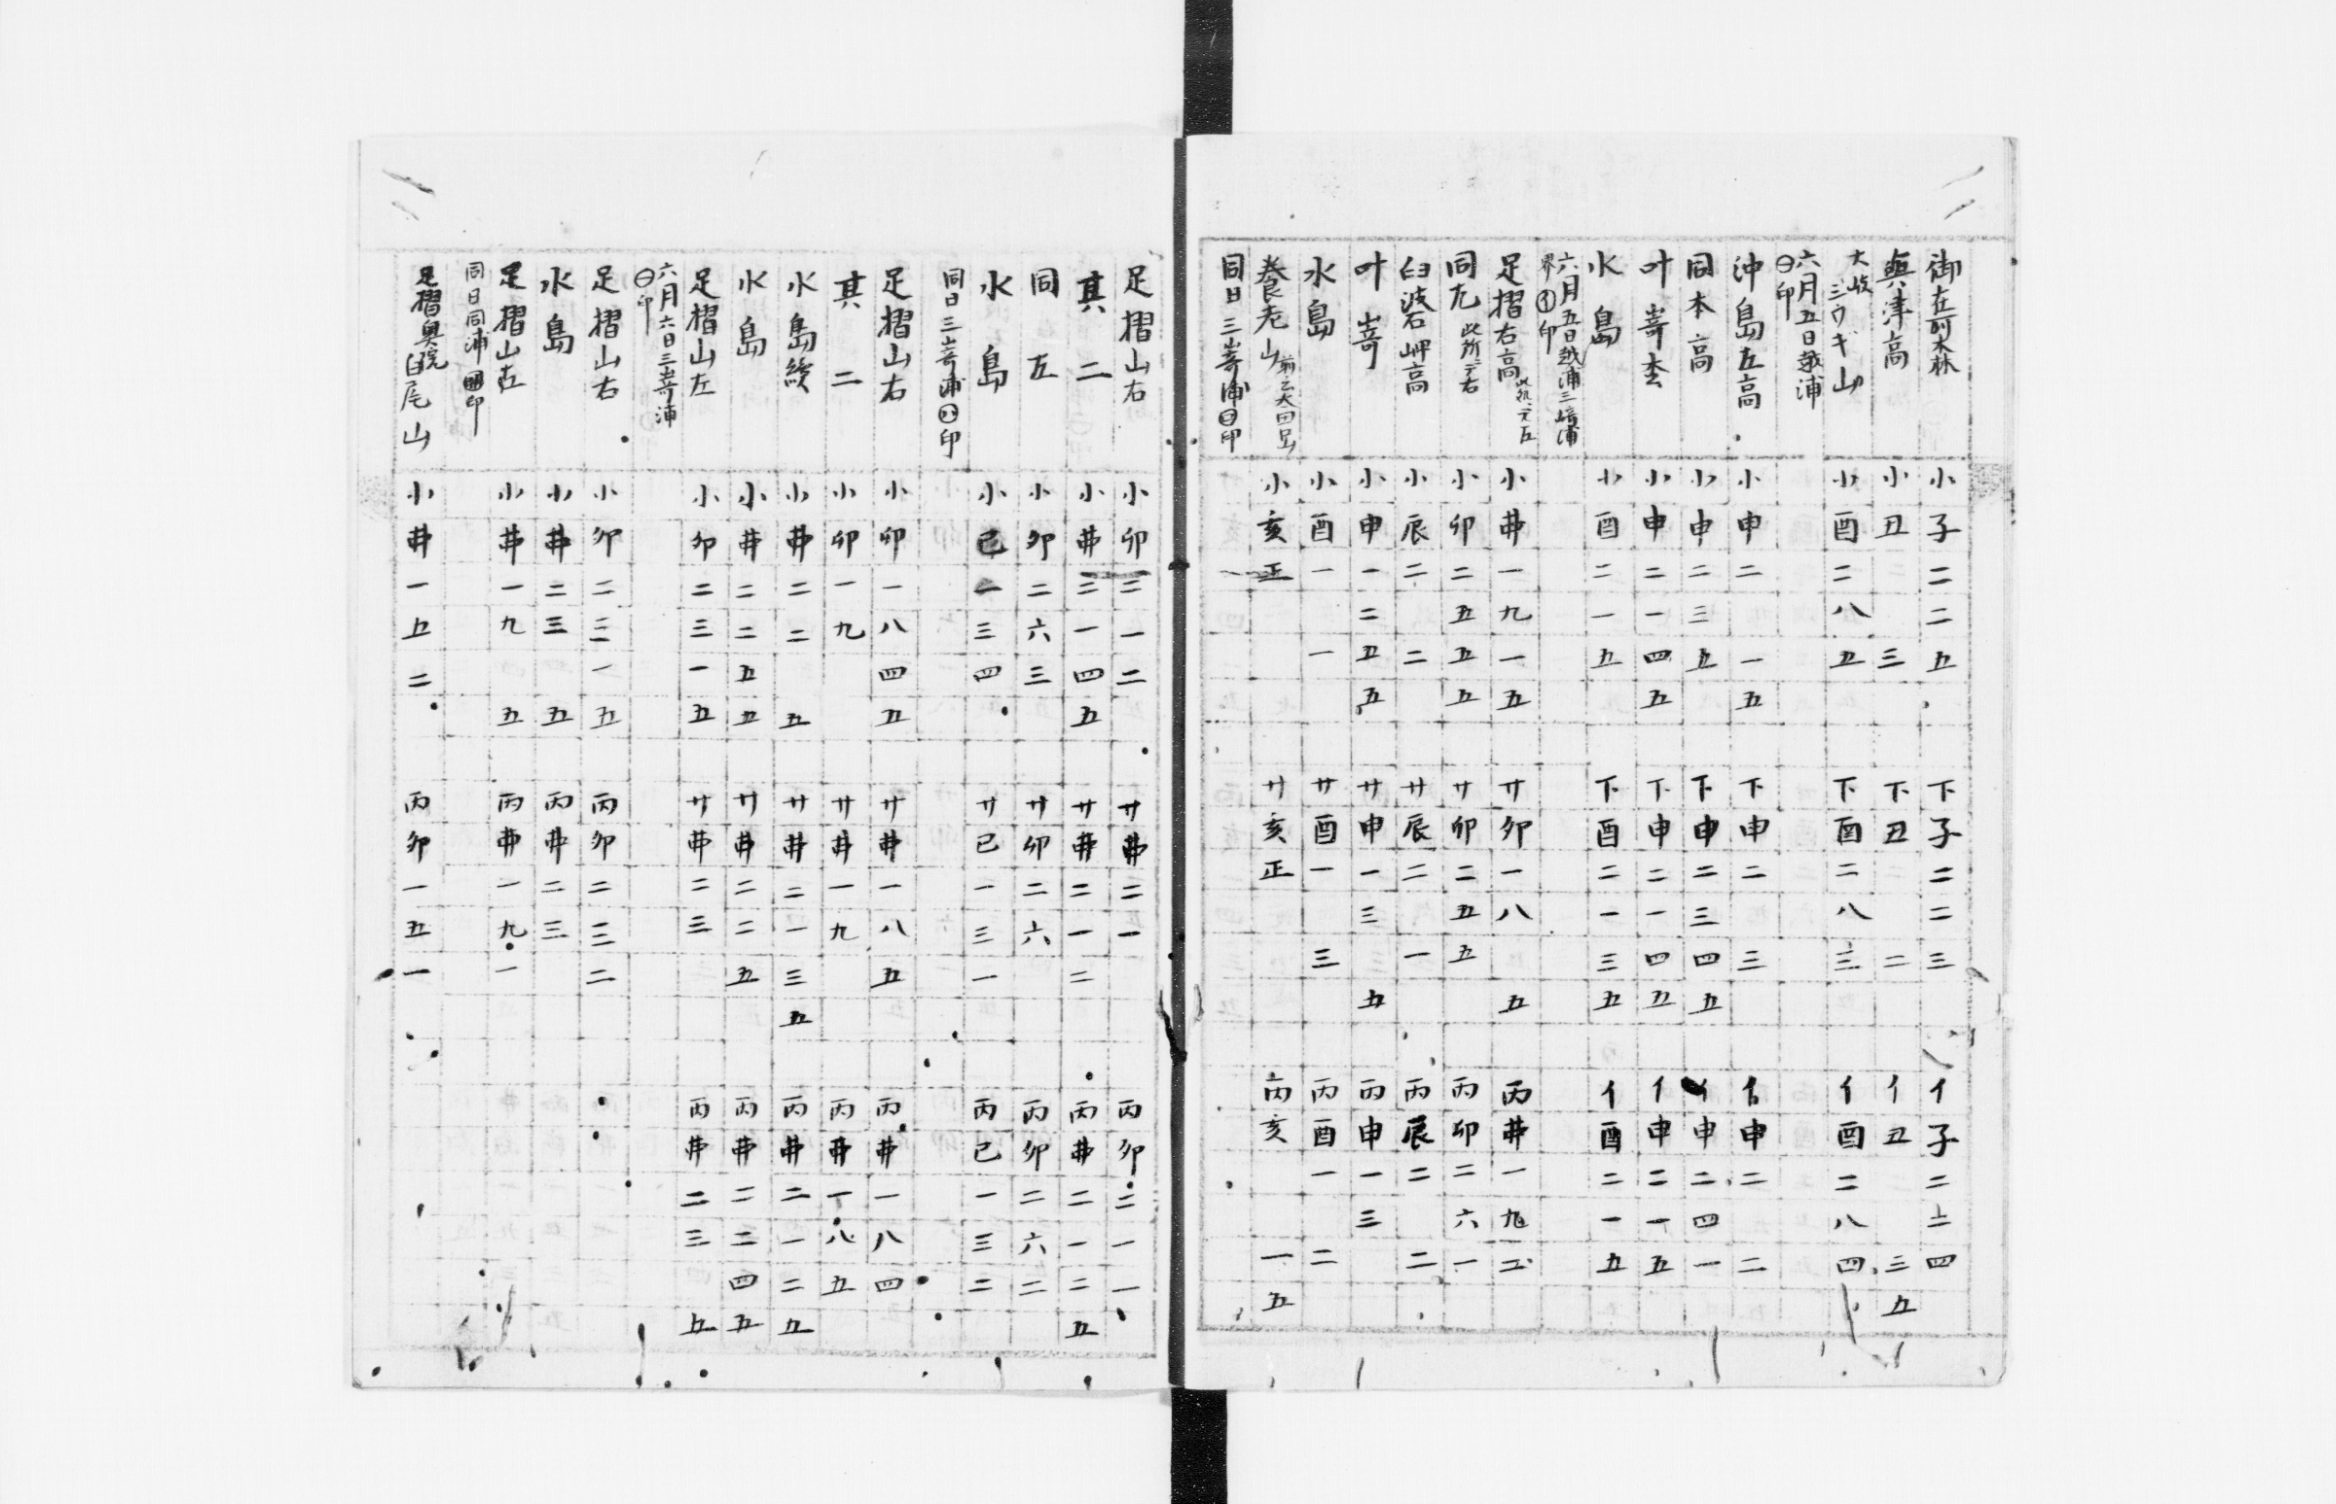 御在所木森 小子二二五 下子二二三 亻子二二四
與津高 小丑三 下丑二 亻丑三五
大岐ミウギ山 小酉二八五 下酉二八三 亻酉二八四
六月五日越浦㊀印
沖島左高 小申二一五 下申二三 亻申二二
同本高 小申二三五 下申二三四五 亻申二四一
叶嵜 小申二一四五 下申二一四五 亻申二一五
水島 小酉二一五 下酉二一三五 亻酉二一五
六月五日越浦三嵜浦界印
足摺右高 小丼一九一五 廾卯一八五 丙丼一九二
同左 小卯二五五五 廾卯二五五 丙卯二六一
臼碆岬高 小辰二二 廾辰二一 丙辰二二
叶嵜 小申一二五五 廾申一三五 丙申一三
水島 小酉一一 廾酉一三 丙酉一二
養老山 小亥正 廾亥正 丙亥一五
同日三嵜浦㊁印
足摺山右 小卯二一二 廾丼二一 丙卯二一一
其二 小丼二一四五 廾丼二一二 丙丼二一二五
同左 小卯二六三 廾卯二六 丙卯二六二
水島 小己一三四 廾己一三一 丙己一三二
同日三嵜浦印
足摺山右 小卯一八四五 廾丼一八五 丙丼一八四
其二 小卯一九 廾丼一九 丙丼一八五
水島續 小丼二二五 廾丼二一三五 丙丼二一二五
水島 小丼二二五五 廾丼二二五 丙丼二二四五
足摺山左 小卯二三一五 廾丼二三 丙丼二三五
六月六日三嵜浦㊀印
足摺山右 小卯二三一五 丙卯二三二
水島 小丼二三五 丙丼二三
足摺山右 小丼一九五 丙丼一九一
同日同浦印
足摺奥院白尾山 小丼一五二 丙卯一五一